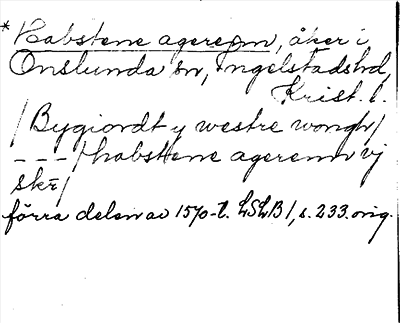 *Habstene agerenn, åker i
Onslunda sn, Ingelstadshd,
Krist. l.
/Bygiordt y westre wongh/
---/habstene agerenn vj
skr/
förra delen av 1570-t. LSLB1, s. 233. orig.